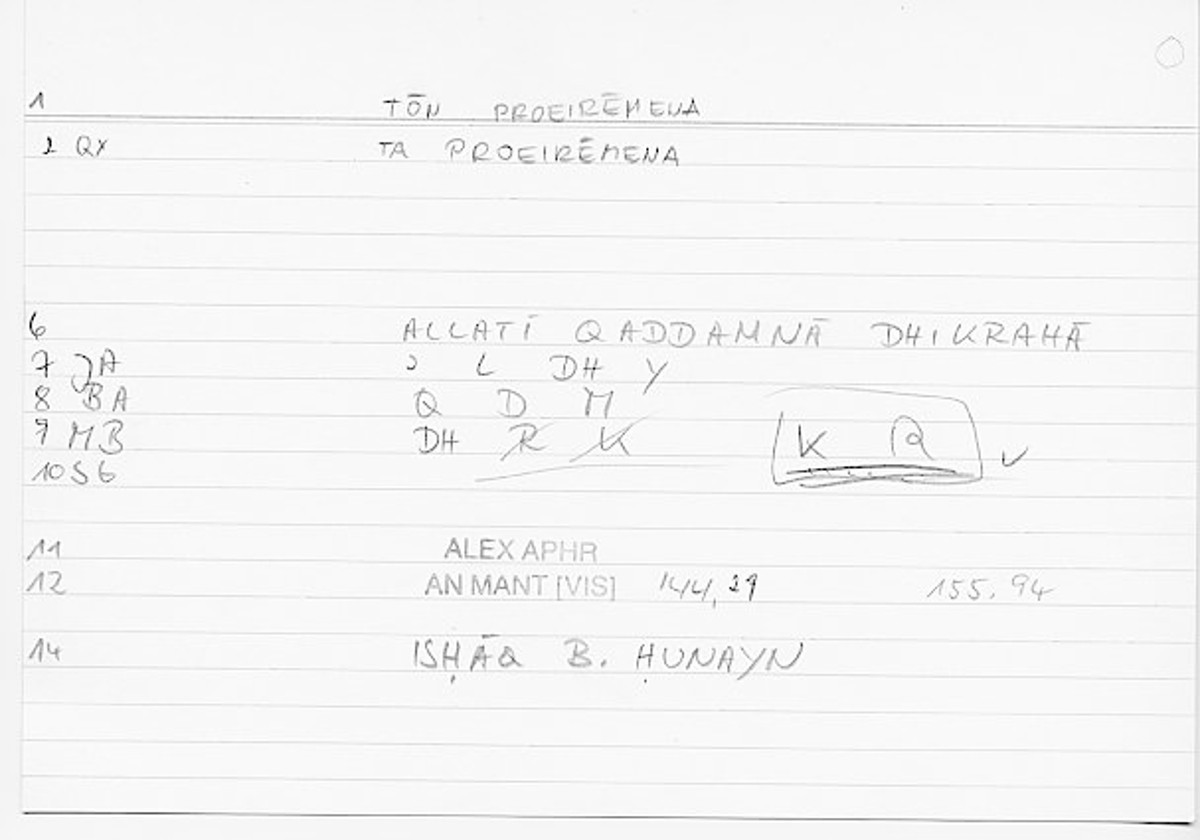 1 TŌN PROEIRĒMENA
2 QY TA PROEIRĒMENA
6 ALLATĪ QADDAMNĀ DHIKRAHĀ
7 JA ʾ L DH Y
8 BA Q D M
9 MB DH R K K R ✓
10 S6
11 ALEX APHR
12 AN MANT [VIS] 144,29 155.94
14 ISḤĀQ B. ḤUNAYN